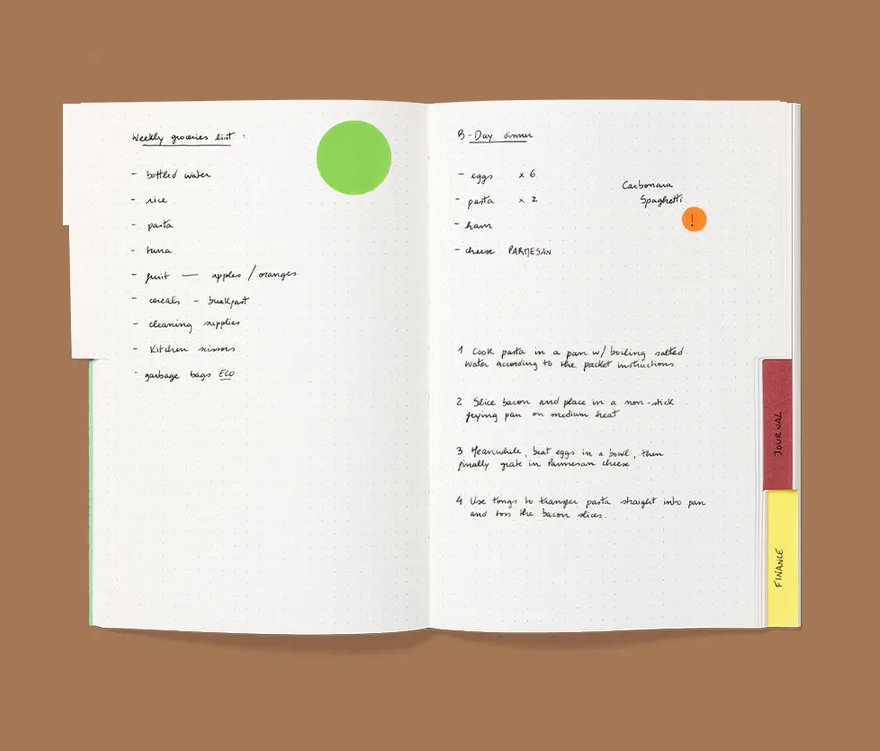 Weekly groceries list :
- bottled water
- rice
- pasta
- tuna
- fruit — apples / oranges
- cereals - breakfast
- cleaning supplies
- Kitchen scissors
- garbage bags ECO
B-Day dinner
- eggs x 6
- pasta x 2
- ham
- cheese PARMESAN
Carbonara
Spaghetti
!
1 Cook pasta in a pan w/ boiling salted
water according to the packet instructions.
2 Slice bacon and place in a non-stick
frying pan on medium heat
3 Meanwhile, beat eggs in a bowl, then
finally grate in Parmesan cheese
4 Use tongs to transfer pasta straight into pan
and toss the bacon slices.
JOURNAL
FINANCE